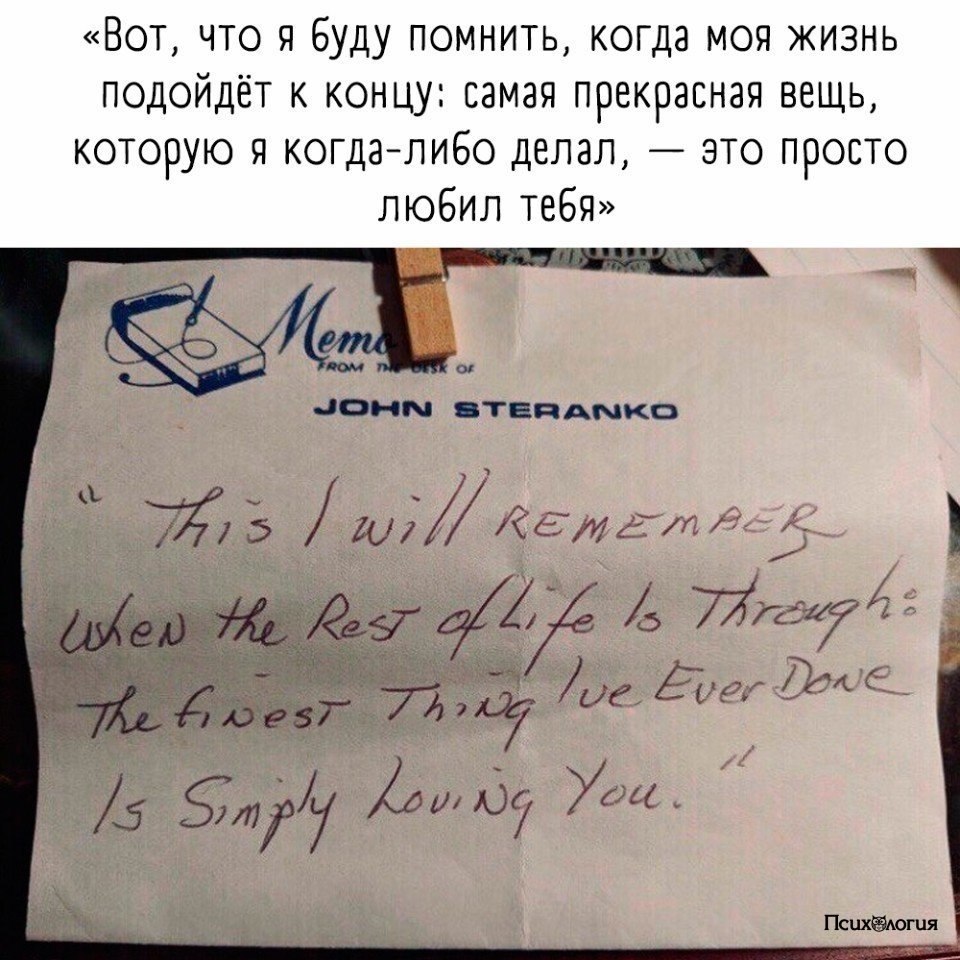 «Вот, что я буду помнить, когда моя жизнь
подойдёт к концу: самая прекрасная вещь,
которую я когда-либо делал, — это просто
любил тебя»
Memo
FROM THE DESK OF
JOHN STERANKO
" This I will REMEMBER
when the Rest of Life Is Through:
The finest Thing I've Ever Done
Is Simply Loving You. "
Психология